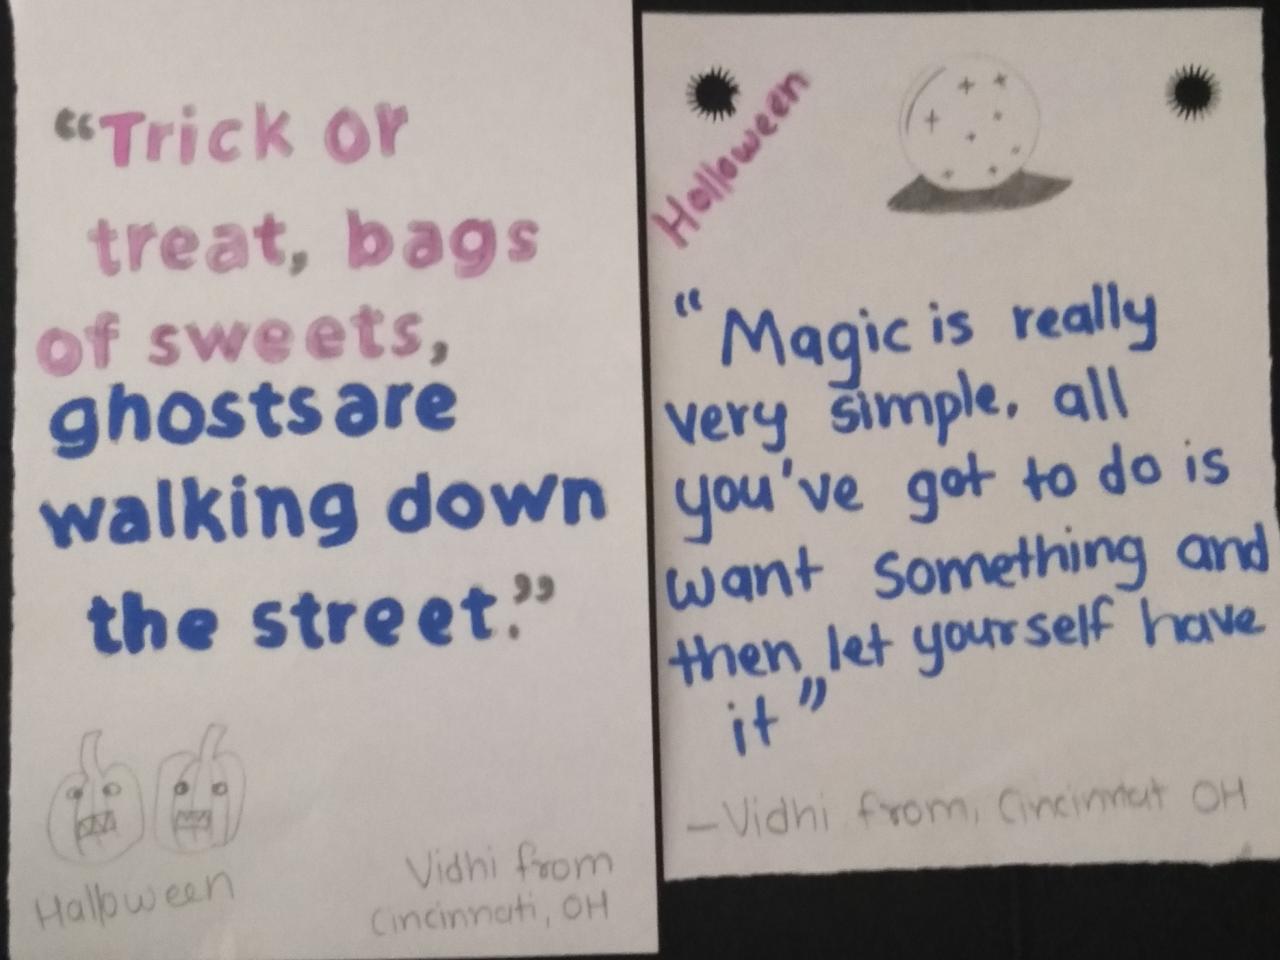 “Trick or
treat, bags
of sweets,
ghosts are
walking down
the street.”
Halloween
Vidhi from
Cincinnati, OH
Halloween
“Magic is really
very simple. all
you've got to do is
want something and
then let yourself have
it”
—Vidhi from, Cincinnat OH